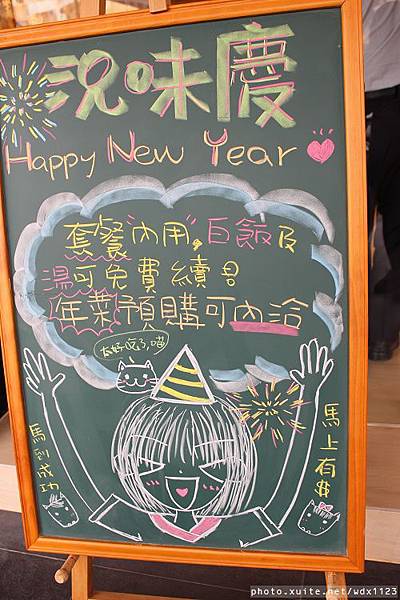 況味慶
Happy New Year
套餐"內用"。白飯及
湯可免費續
年菜預購可內洽
喵
馬到成功
馬上有$
photo.xuite.net/wdx1123